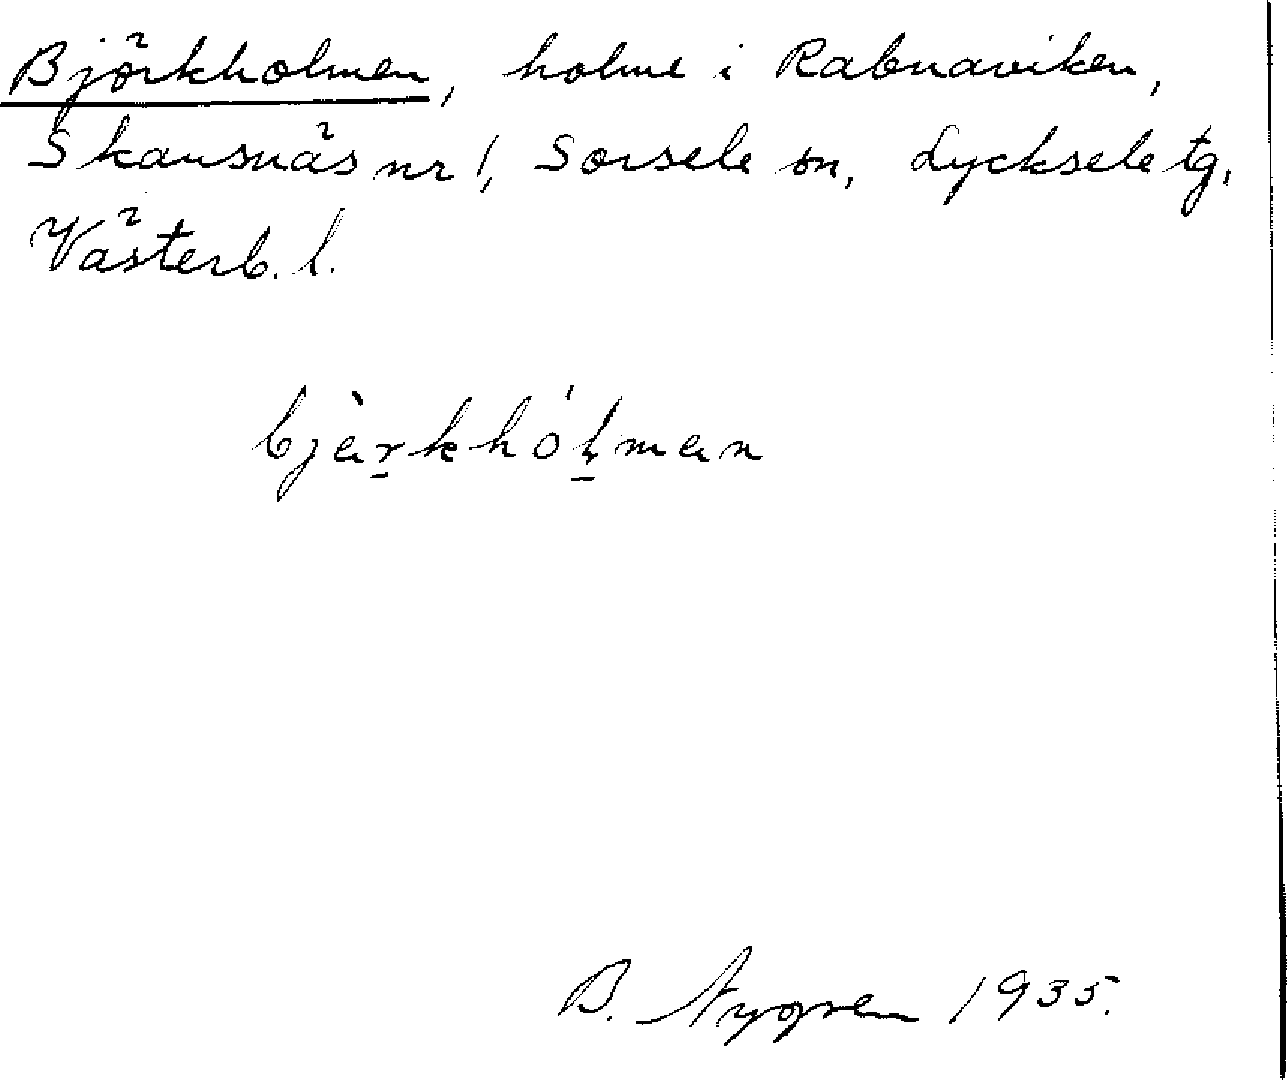 Björkholmen, holme i Rabnaviken,
Skansnäs nr 1, Sorsele sn, Lycksele tg,
Västerb. l.
bjὲr̲khól̲mεn
B. Nygren 1935.